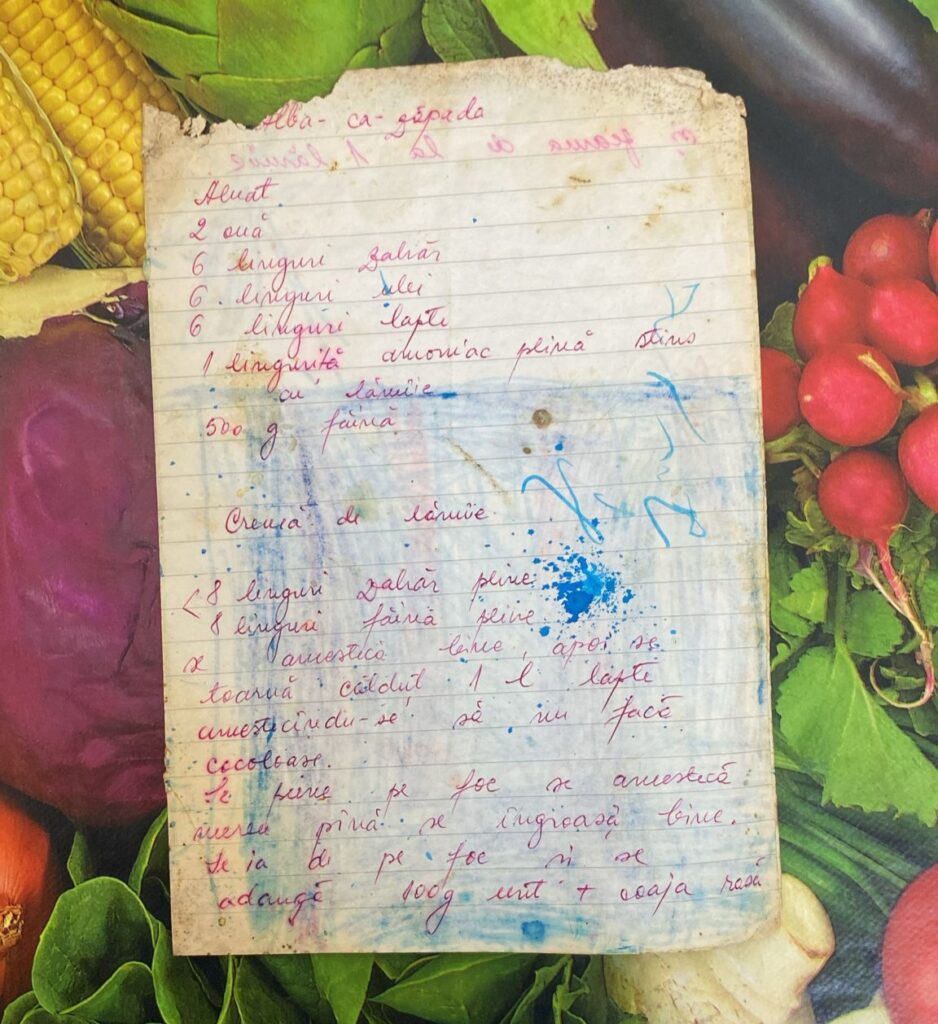 Alba-ca-zăpada
și zeama de la 1 lămîie
Aluat
2 ouă
6 linguri zahăr
6 linguri ulei
6 linguri lapte
1 linguriță amoniac plină stins
cu lămîie
500 g făină
Cremă de lămîie
<8 linguri zahăr pline
8 linguri făină pline
se amestică bine, apoi se
toarnă călduț 1 l lapte
amesticîndu-se să nu facă
cocoloașe.
Se pune pe foc se amestică
mereu pînă se îngroașă bine.
Se ia de pe foc și se
adaugă 100g unt + coaja rasă